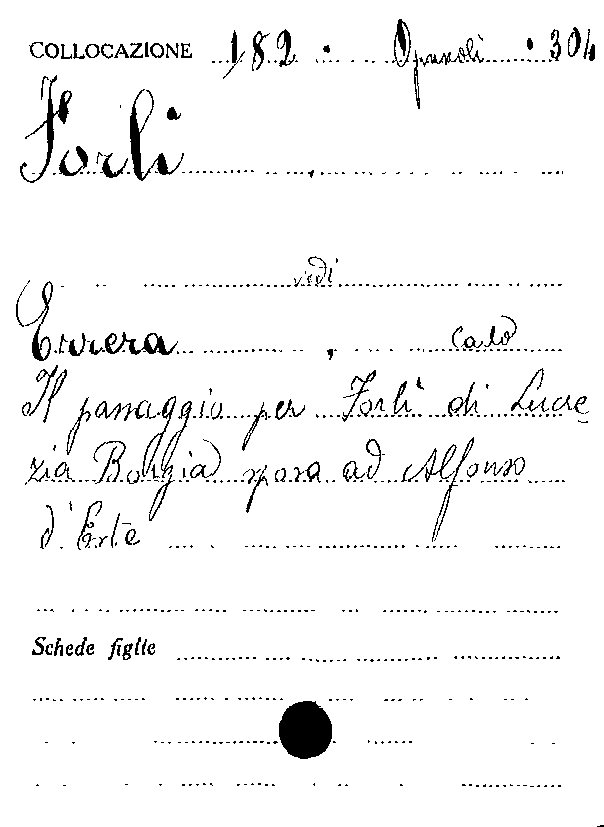 COLLOCAZIONE 182 · Opuscoli · 304
Forlì
vedi
Errera, Carlo
Il passaggio per Forlì di Lucre
zia Borgia sposa ad Alfonso
d'Este
Schede figlie